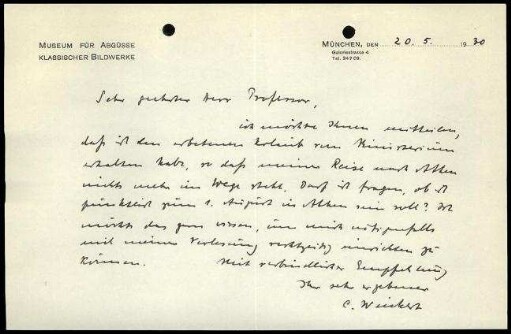 MUSEUM FÜR ABGÜSSE
KLASSISCHER BILDWERKE
MÜNCHEN, DEN 20. 5. 1930
Galeriestrasse 4
Tel. 24909
Sehr geehrter Herr Professor,
ich möchte Ihnen mitteilen,
daß ich den erbetenen Urlaub vom Ministerium
erhalten habe, so daß meiner Reise nach Athen
nichts mehr im Wege steht. Darf ich fragen, ob ich
pünktlich zum 1. August in Athen sein soll? Ich
möchte das gern wissen, um mich nötigenfalls
mit meiner Vorlesung rechtzeitig einrichten zu
können. Mit verbindlicher Empfehlung
Ihr sehr ergebener
C. Weickert